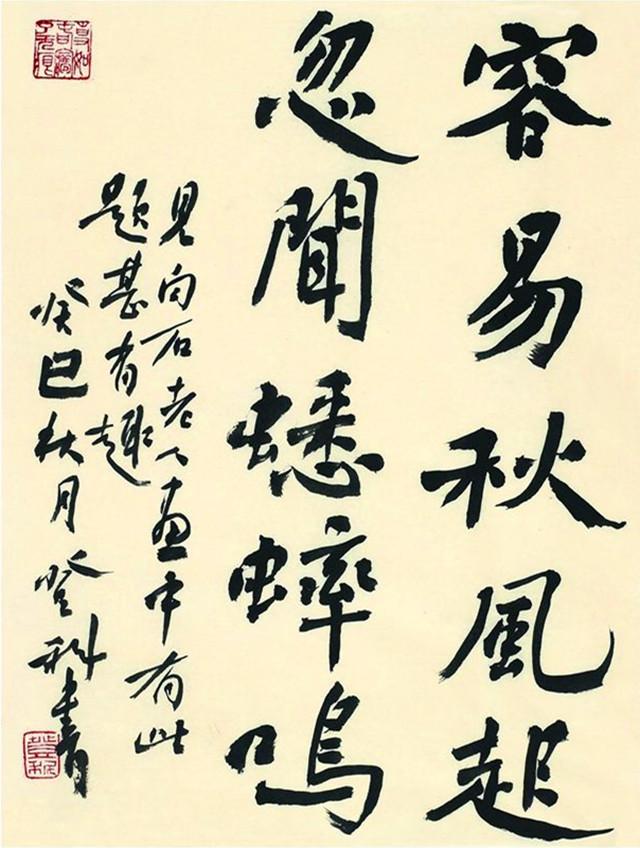 容易秋風起
忽聞蟋蟀鳴
見白石老人画中有此
題甚有趣
癸巳秋月登科書
登科